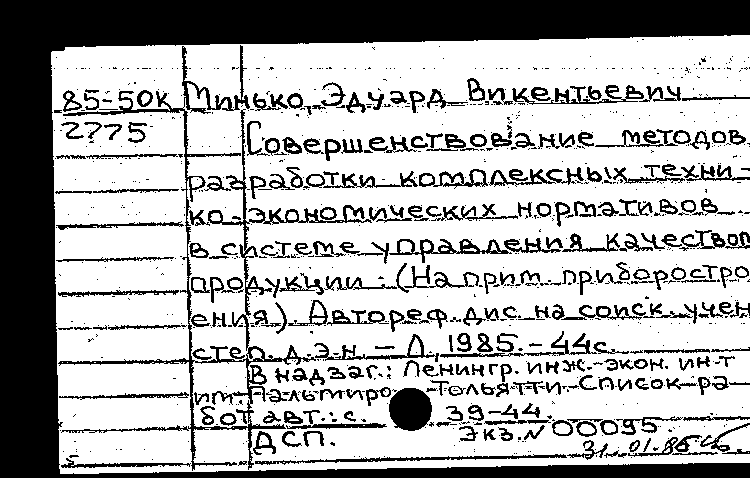 85-50к Минько, Эдуард Викентьевич
2775 Совершенствование методов
разработки комплексных техни-
ко-экономических нормативов
в системе управления качеством
продукции: (На прим. приборостро
ения). Автореф. дис. на соиск. учен
степ. д.э.н. - Л., 1985. - 44с.
В надзаг.: Ленингр. инж.-экон. ин-т
им. Пальмиро Тольятти. Список ра-
бот авт.: с. 39-44.
ДСП. Экз. N 00095.
31.01.86